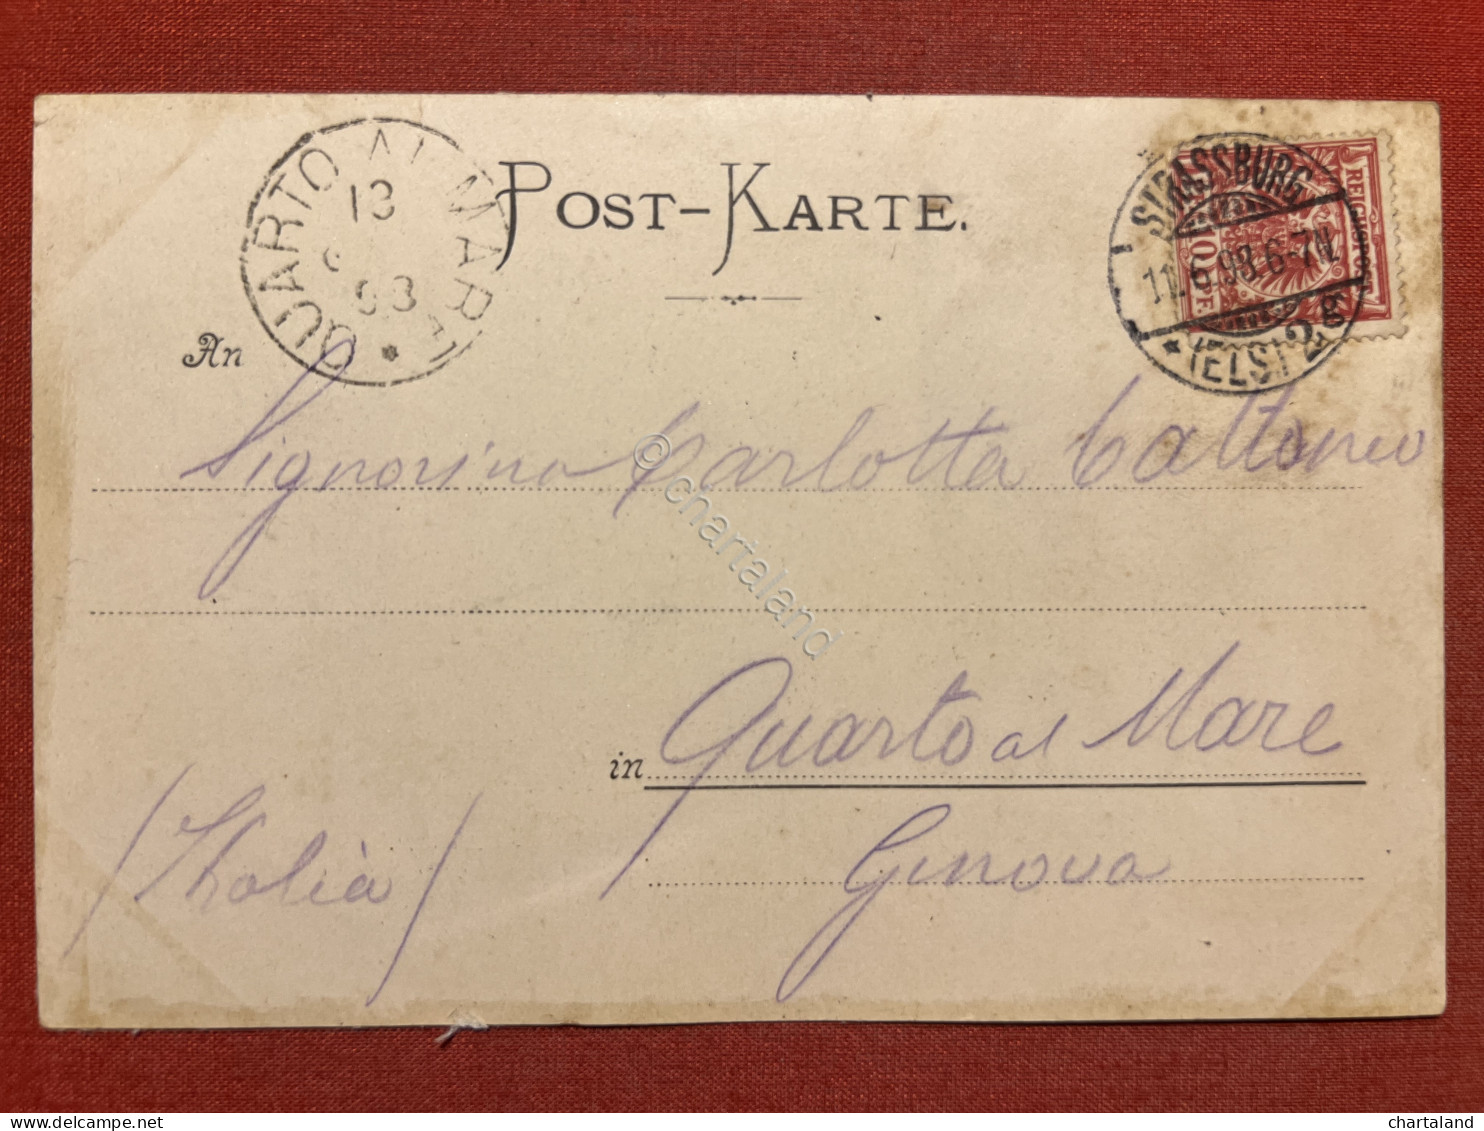 QUARTO AL MARE
13
98
POST-KARTE.
STRASSBURG
11.6.98.6-7N.
* (ELS) 2g
REICHSPOST
10 PF.
An
Signorina Carlotta Cattaneo
in Quarto al Mare
Genova
/ Italia /
©chartaland
delcampe.net
chartaland